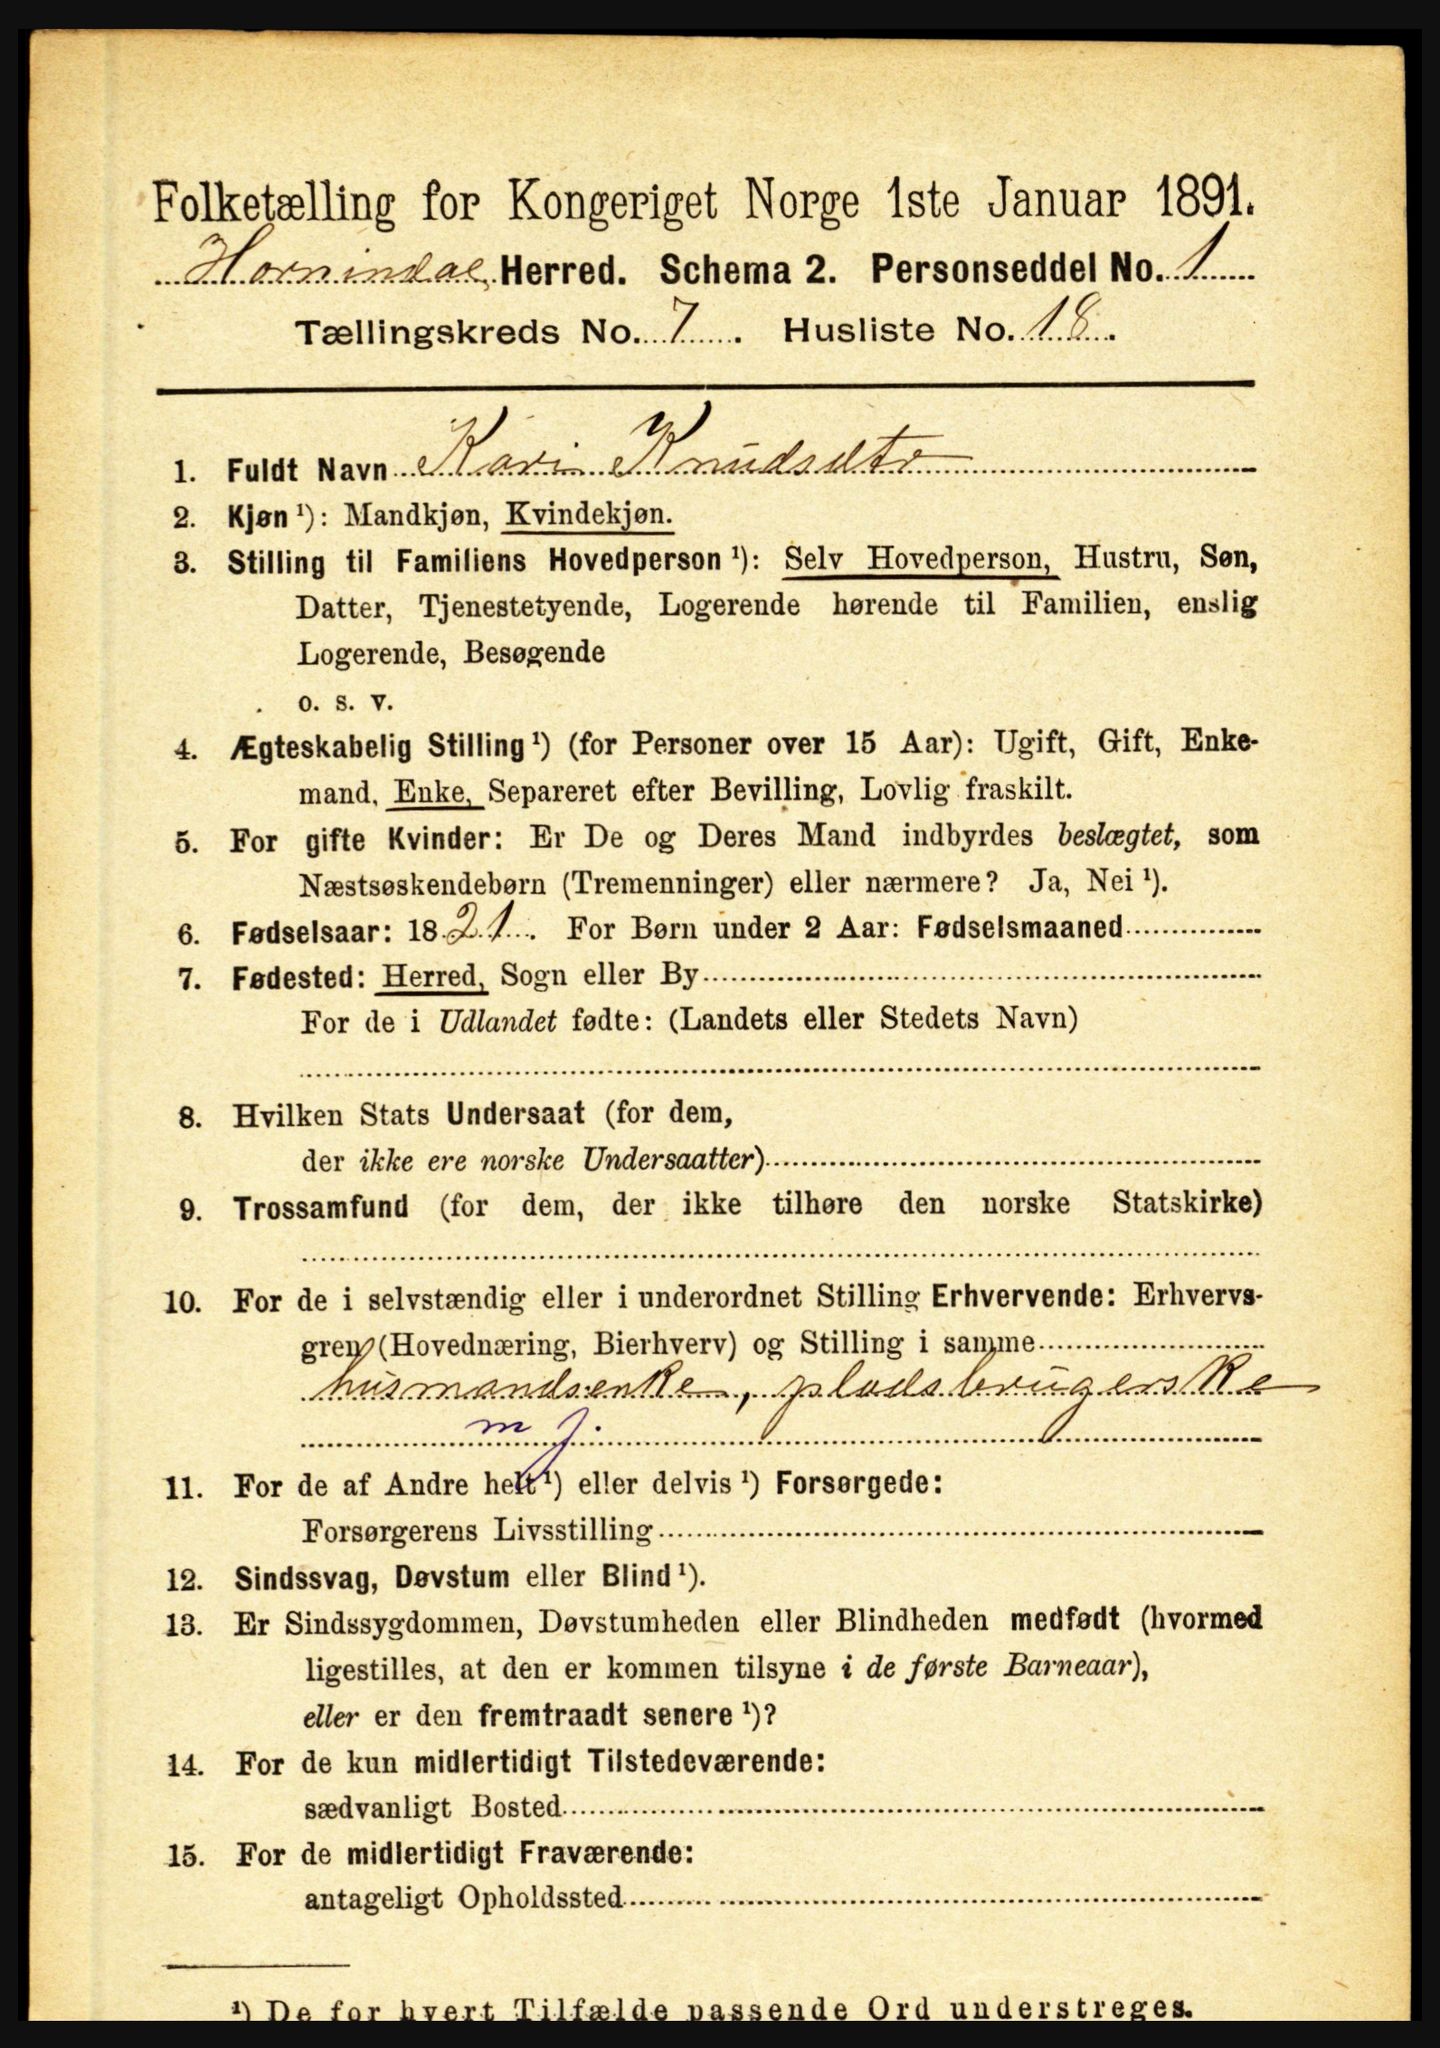 Folketælling for Kongeriget Norge 1ste Januar 1891.
Hornindal Herred. Schema 2. Personseddel No. 1
Tællingskreds No. 7. Husliste No. 18.
1. Fuldt Navn Kari Knudsdtr
2. Kjøn ¹): Mandkjøn, Kvindekjøn.
3. Stilling til Familiens Hovedperson ¹): Selv Hovedperson, Hustru, Søn,
Datter, Tjenestetyende, Logerende hørende til Familien, enslig
Logerende, Besøgende
o. s. v.
4. Ægteskabelig Stilling ¹) (for Personer over 15 Aar): Ugift, Gift, Enke-
mand, Enke, Separeret efter Bevilling, Lovlig fraskilt.
5. For gifte Kvinder: Er De og Deres Mand indbyrdes beslægtet, som
Næstsøskendebørn (Tremenninger) eller nærmere? Ja, Nei ¹).
6. Fødselsaar: 1821. For Børn under 2 Aar: Fødselsmaaned
7. Fødested: Herred, Sogn eller By
For de i Udlandet fødte: (Landets eller Stedets Navn)
8. Hvilken Stats Undersaat (for dem,
der ikke ere norske Undersaatter)
9. Trossamfund (for dem, der ikke tilhøre den norske Statskirke)
10. For de i selvstændig eller i underordnet Stilling Erhvervende: Erhvervs-
gren (Hovednæring, Bierhverv) og Stilling i samme
husmandsenke, pladsbrugerske
m j.
11. For de af Andre helt ¹) eller delvis ¹) Forsørgede:
Forsørgerens Livsstilling
12. Sindssvag, Døvstum eller Blind ¹).
13. Er Sindssygdommen, Døvstumheden eller Blindheden medfødt (hvormed
ligestilles, at den er kommen tilsyne i de første Barneaar),
eller er den fremtraadt senere ¹)?
14. For de kun midlertidigt Tilstedeværende:
sædvanligt Bosted
15. For de midlertidigt Fraværende:
antageligt Opholdssted
¹) De for hvert Tilfælde passende Ord understreges.